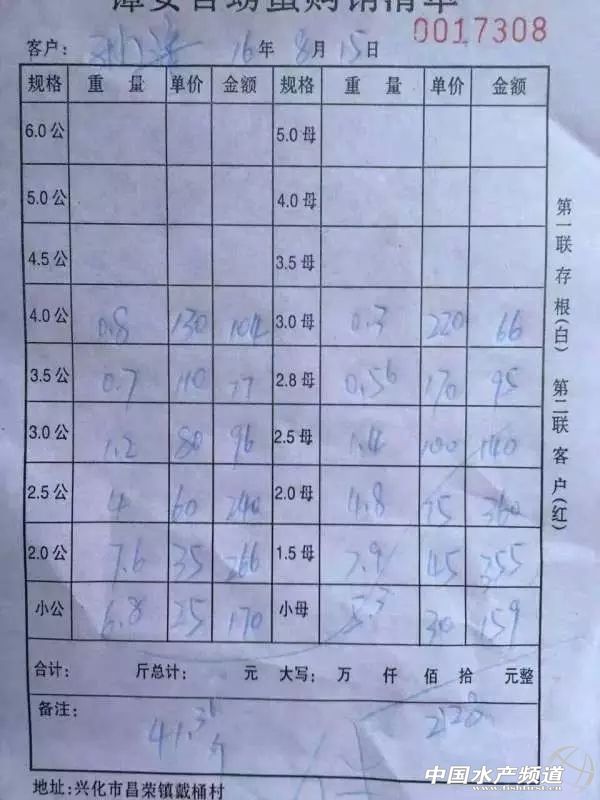 螃蟹购销清单
0017308
客户: 16年8月15日
规格 重量 单价 金额 规格 重量 单价 金额
6.0公 5.0母
5.0公 4.0母
4.5公 3.5母
4.0公 0.8 130 104 3.0母 0.3 220 66
3.5公 0.7 110 77 2.8母 0.56 170 95
3.0公 1.2 80 96 2.5母 1.4 100 140
2.5公 4 60 240 2.0母 4.8 75 360
2.0公 7.6 35 266 1.5母 7.9 45 355
小公 6.8 25 170 小母 5.3 30 159
合计: 斤总计: 元 大写: 万 仟 佰 拾 元整
备注: 41.36斤 2128
地址:兴化市昌荣镇戴桶村
第一联存根(白) 第二联客户(红)
中国水产频道
www.fishfirst.cn